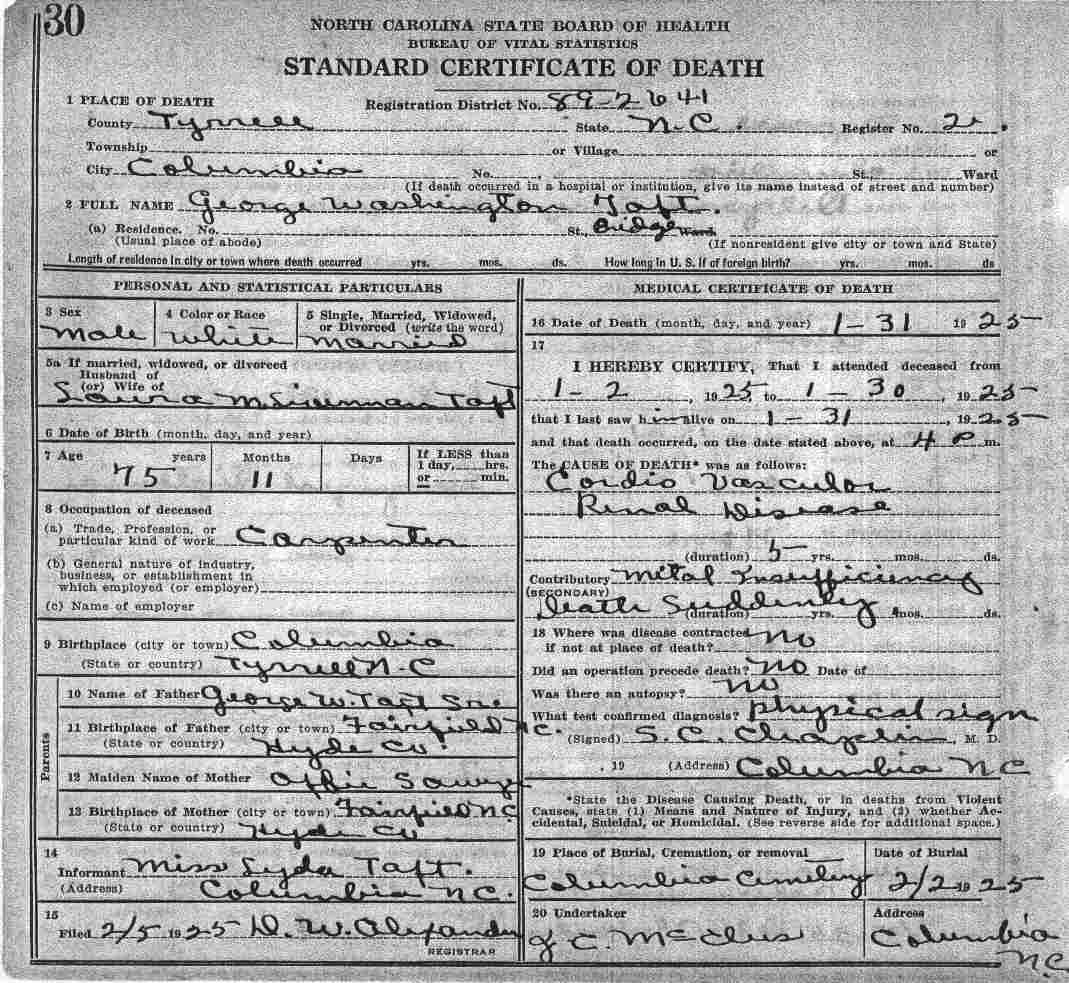 30
NORTH CAROLINA STATE BOARD OF HEALTH
BUREAU OF VITAL STATISTICS
STANDARD CERTIFICATE OF DEATH
1 PLACE OF DEATH Registration District No. 89-2641
County Tyrrell State N.C. Register No. 2
Township or Village or
City Columbia No. , St., Ward
(If death occurred in a hospital or institution, give its name instead of street and number)
2 FULL NAME George Washington Taft.
(a) Residence. No. St., Bridge Ward
(Usual place of abode) (If nonresident give city or town and State)
Length of residence in city or town where death occurred yrs. mos. ds. How long in U. S. if of foreign birth? yrs. mos. ds
PERSONAL AND STATISTICAL PARTICULARS
3 Sex 4 Color or Race 5 Single, Married, Widowed,
or Divorced (write the word)
Male White Married
5a If married, widowed, or divorced
Husband of
(or) Wife of
Laura Taft
6 Date of Birth (month, day, and year)
7 Age years Months Days If LESS than
1 day, hrs.
or min.
75 11
8 Occupation of deceased
(a) Trade, Profession, or
particular kind of work Carpenter
(b) General nature of industry,
business, or establishment in
which employed (or employer)
(c) Name of employer
9 Birthplace (city or town) Columbia
(State or country) Tyrrell N-C
Parents
10 Name of Father George W. Taft Sr.
11 Birthplace of Father (city or town) Fairfield N.C.
(State or country) Hyde Co.
12 Maiden Name of Mother Sawyer
13 Birthplace of Mother (city or town) Fairfield N.C
(State or country) Hyde Co
14
Informant Miss Lyda Taft.
(Address) Columbia N.C.
15
Filed 2/5 1925 D. W. Alexander
REGISTRAR
MEDICAL CERTIFICATE OF DEATH
16 Date of Death (month, day, and year) 1-31 1925
17
I HEREBY CERTIFY, That I attended deceased from
1-2, 1925, to 1-30, 1925
that I last saw him alive on 1-31, 1925
and that death occurred, on the date stated above, at 4 P m.
The CAUSE OF DEATH* was as follows:
Cardio Vascular
Renal Disease
(duration) 5 yrs. mos. ds.
Contributory Mital Insufficiency
(SECONDARY)
Death Suddenly
(duration) yrs. mos. ds.
18 Where was disease contracted
if not at place of death? No
Did an operation precede death? No Date of
Was there an autopsy? No
What test confirmed diagnosis? physical sign
(Signed) S. C. Chaplin, M. D.
, 19 (Address) Columbia N C
*State the Disease Causing Death, or in deaths from Violent
Causes, state (1) Means and Nature of Injury, and (2) whether Ac-
cidental, Suicidal, or Homicidal. (See reverse side for additional space.)
19 Place of Burial, Cremation, or removal Date of Burial
Columbia Cemetery 2/2 1925
20 Undertaker Address
J C. Columbia
N C